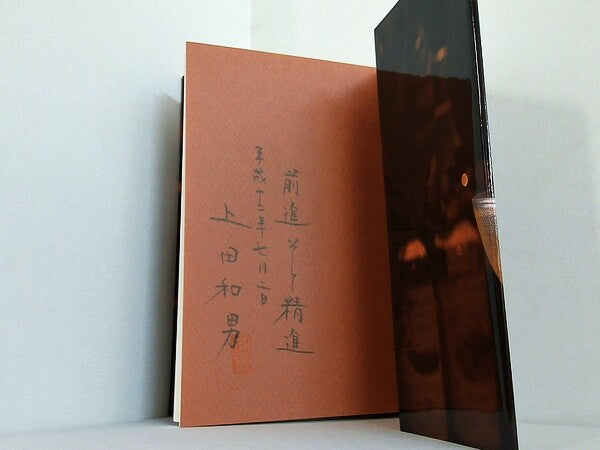 前進そして精進
平成十二年七月二日
上田和男